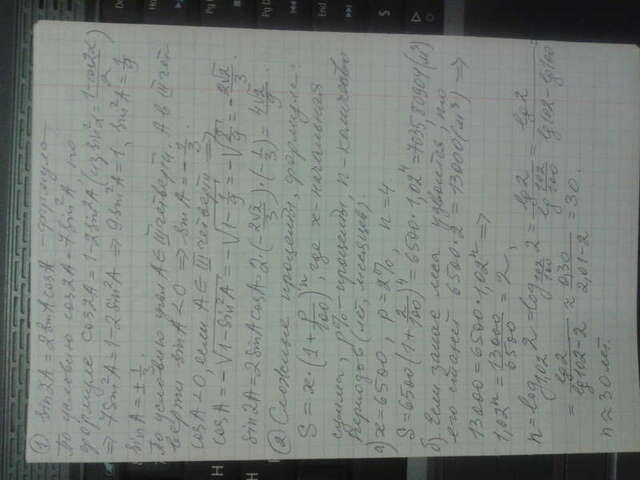 ① sin2A = 2sinA cosA - формула
По условию cos2A = 7sin²A, по
формуле cos2A = 1-2sin²A (из sin²α = (1-cos2α)/2)
⇒ 7sin²A = 1-2sin²A ⇒ 9sin²A = 1, sin²A = 1/9
sinA = ± 1/3
По условию угол A ∈ III четверти. А в III чет-
верти sinA<0 ⇒ sinA = -1/3
cosA<0, если A ∈ III четверти ⇒
cosA = -√(1-sin²A) = -√(1-1/9) = -√(8/9) = -2√2/3
sin2A = 2sinA cosA = 2·(-2√2/3)·(-1/3) = 4√2/9
② Сложные проценты, формула:
S = x(1+p/100)ⁿ, где x-начальная
сумма, p%-проценты, n-количество
периодов (лет, месяцев).
а) x=6500, p=2%, n=4
S = 6500(1+2/100)⁴ = 6500·1,02⁴ = 7035,80904 (м³)
б) Если запас леса удвоится, то
его станет 6500·2 = 13000 (м³) ⇒
13000 = 6500·1,02ⁿ ⇒
1,02ⁿ = 13000/6500 = 2,
n = log₁,₀₂ 2 = log₁₀₂/₁₀₀ 2 = lg2/lg(102/100) = lg2/(lg102-lg100) =
= lg2/(lg102-2) ≈ 0,30/(2,01-2) = 30.
n ≈ 30 лет.